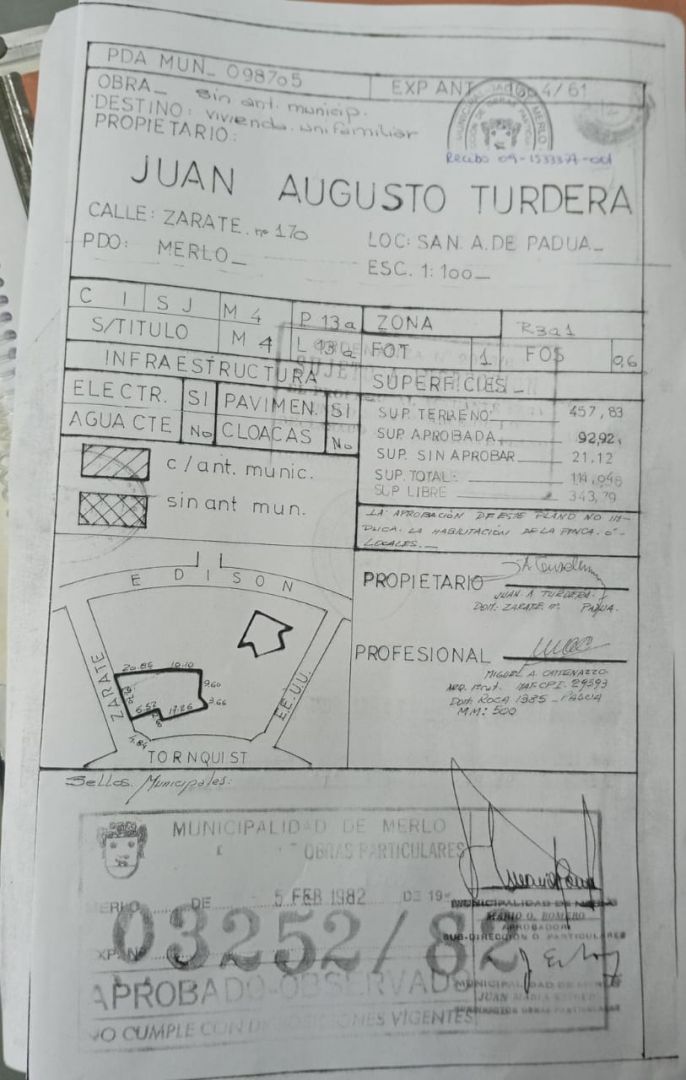 PDA MUN_ 098705
EXP ANT 1004/61
OBRA_ sin ant. municip.
DESTINO: vivienda. unifamiliar
PROPIETARIO:
MUNICIPALIDAD DE MERLO
Recibo 09-1533377-001
JUAN AUGUSTO TURDERA
CALLE: ZARATE. nº 170
LOC: SAN. A. DE PADUA_
PDO: MERLO_
ESC. 1:100_
C I SJ M 4 P 13a ZONA R3a1
S/TITULO M 4 L 13a FOT 1 FOS 0,6
INFRAESTRUCTURA
SUJETO A
SUPERFICIES_
ELECTR. SI PAVIMEN. SI
AGUA CTE No CLOACAS No
SUP. TERRENO: 457,83
SUP. APROBADA 92,92,
SUP. SIN APROBAR 21.12
SUP. TOTAL: 114,048
SUP LIBRE 343,79
c/ant. munic.
sin ant mun.
LA APROBACIÓN DE ESTE PLANO NO IM-
PLICA. LA HABILITACIÓN DE LA FINCA. O-
LOCALES._
EDISON
ZARATE
20.86 10.10
9.60
3.66
6.52 17.26
4.84
EE.UU.
TORNQUIST
PROPIETARIO
JUAN A. TURDERA.
DOM: ZARATE. nº PADUA.
PROFESIONAL
MIGUEL A. CATENAZZO
DOM ROCA 1985 _ PADUA
MM: 500
Sellos. Municipales:
MUNICIPALIDAD DE MERLO
OBRAS PARTICULARES
MERLO DE 5 FEB 1982 DE 19
03252/82
EXP. Nº
APROBADO-OBSERVADO
NO CUMPLE CON DISPOSICIONES VIGENTES
MUNICIPALIDAD DE MERLO
MARIO O. ROMERO
APROBADOR
SUB-DIRECCION O. PARTICULARES
MUNICIPALIDAD DE MERLO
JUAN MARIA
OBRAS PARTICULARES